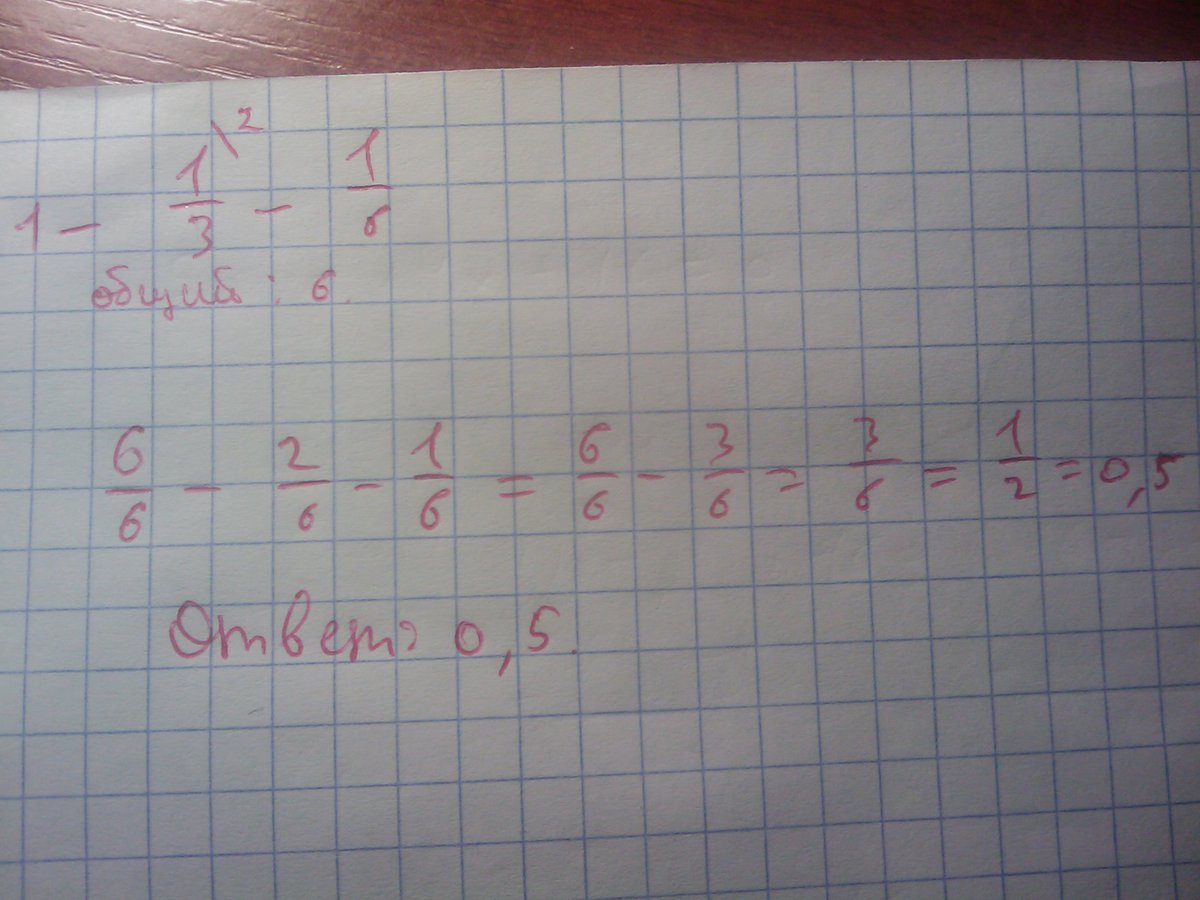 1 - 1/3 \2 - 1/6
общий: 6.
6/6 - 2/6 - 1/6 = 6/6 - 3/6 = 3/6 = 1/2 = 0,5
Ответ: 0,5.